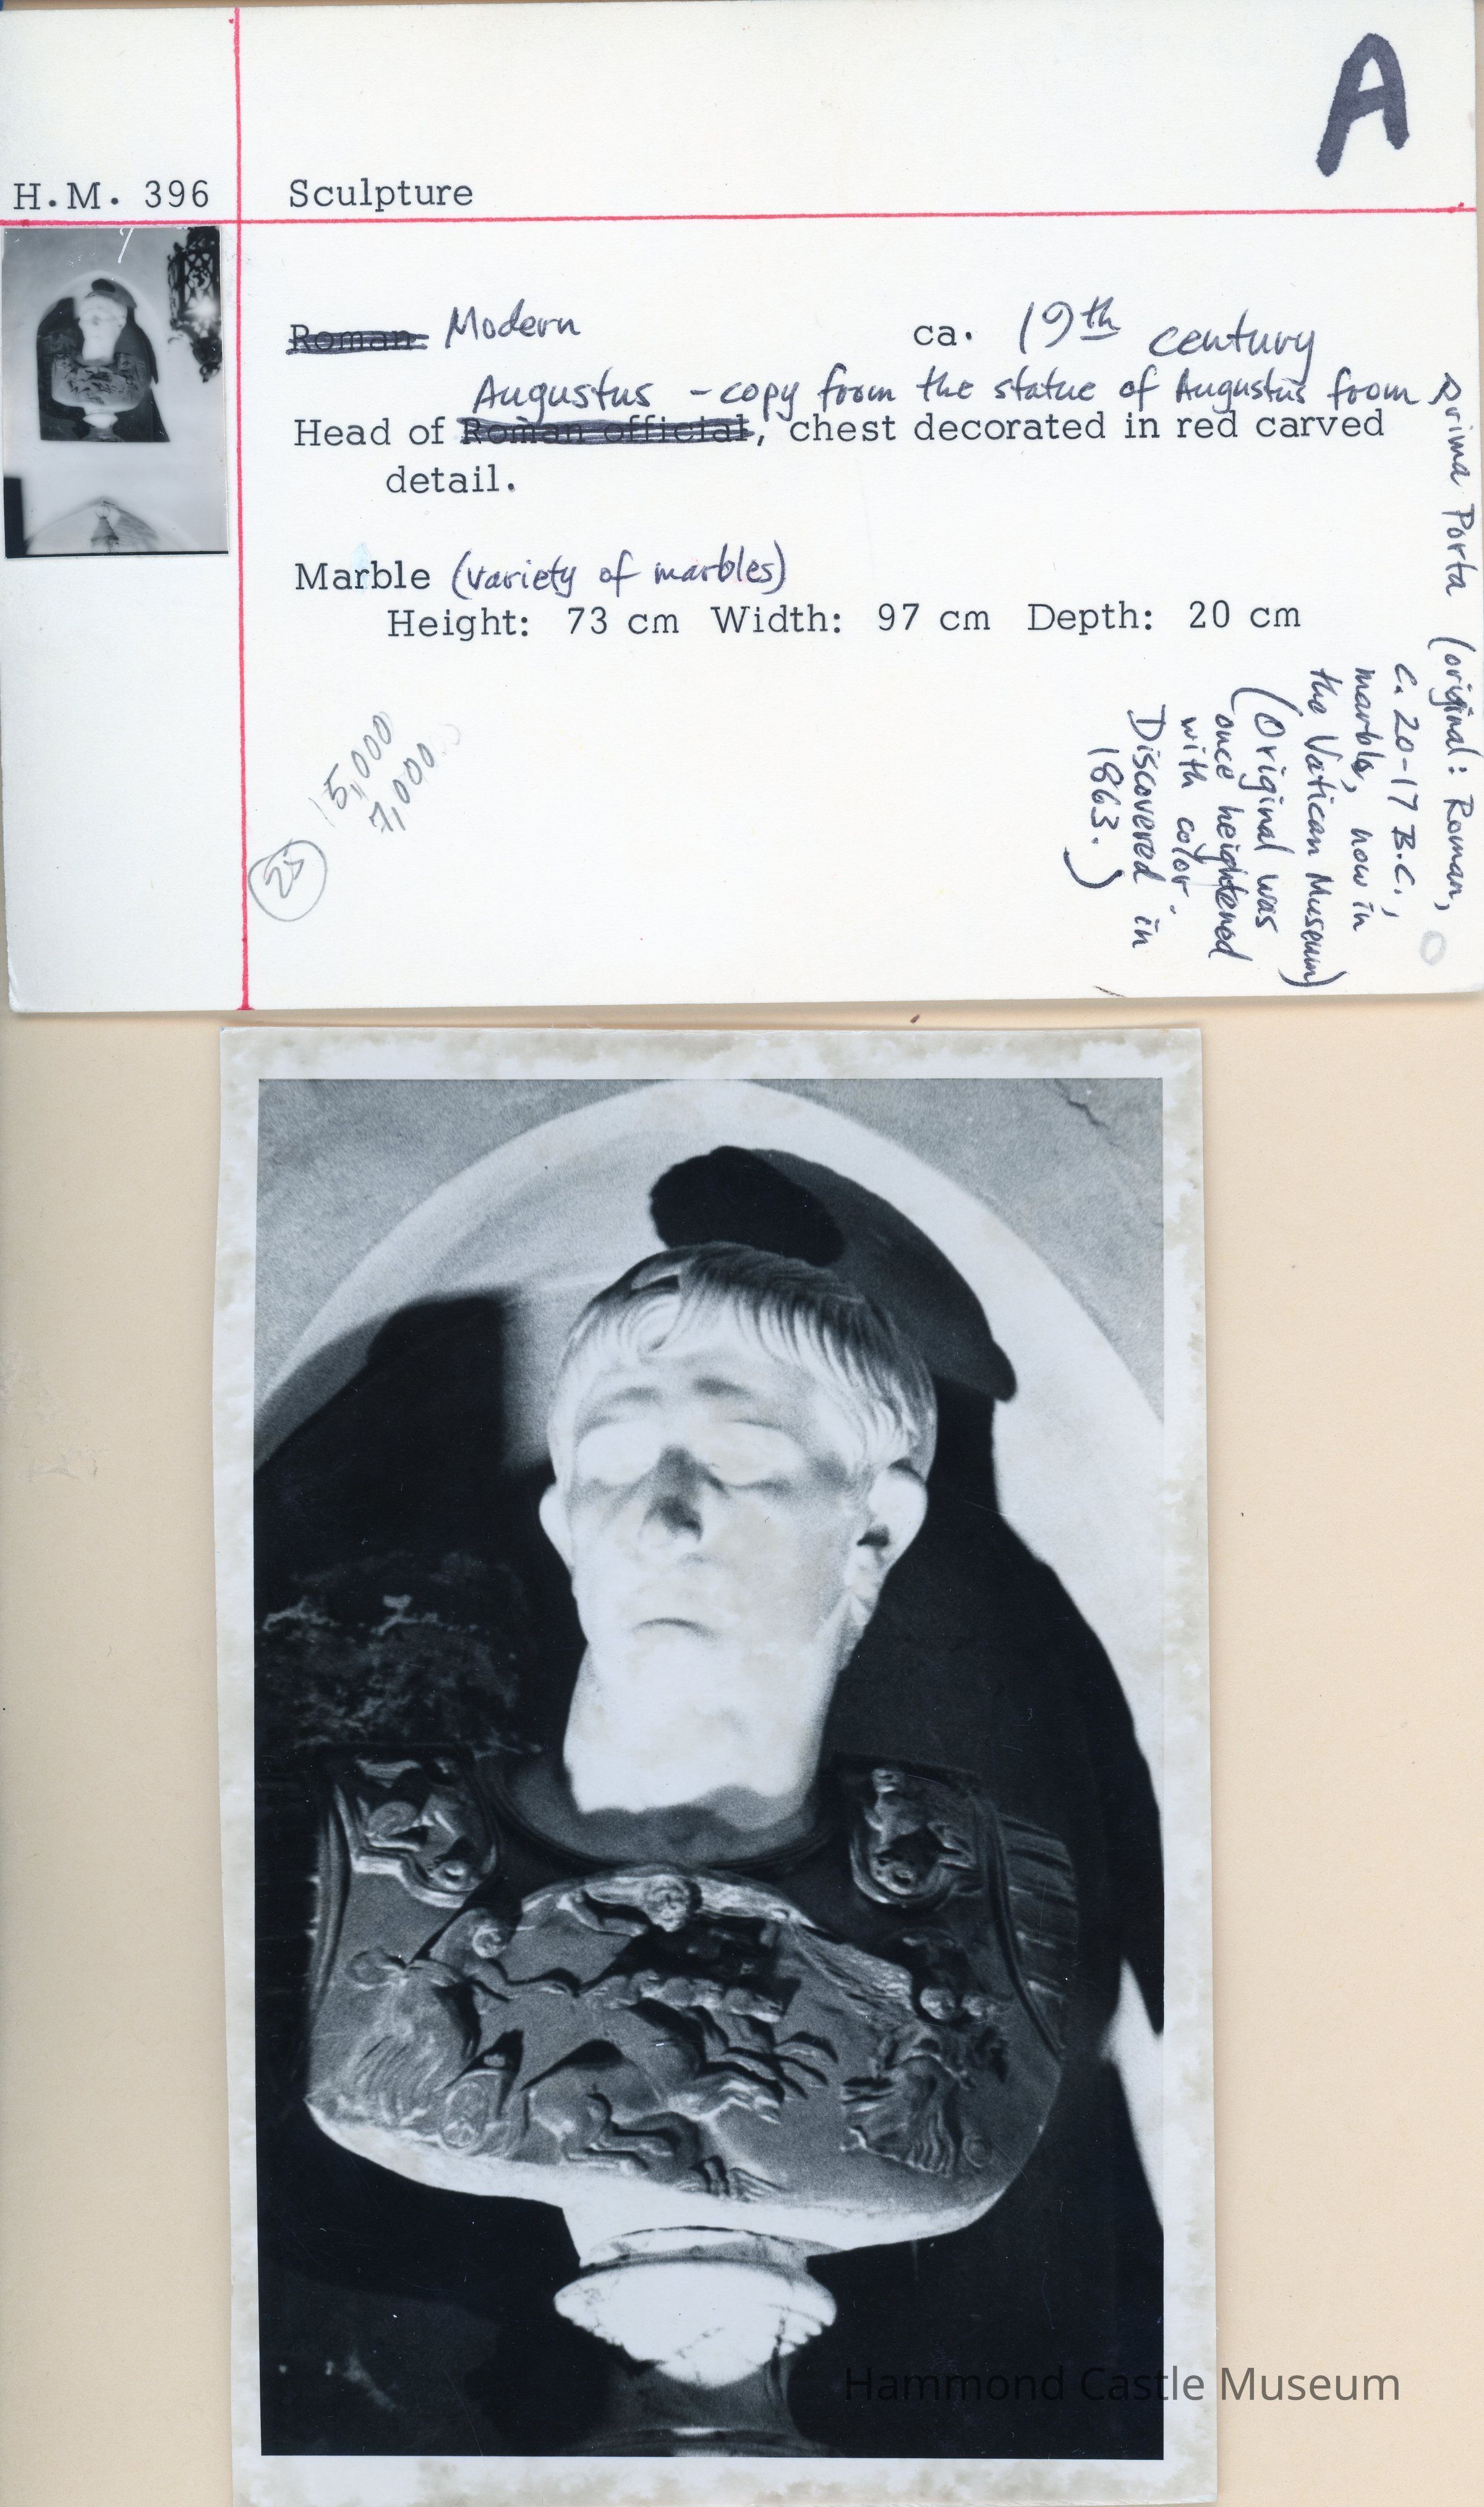 A
H.M. 396
Sculpture
Roman. Modern
ca. 19th century
Augustus - copy from the statue of Augustus from Prima Porta (original: Roman,
c. 20-17 B.C.,
marble, now in
the Vatican Museum)
(Original was
once heightened
with color.
Discovered in
1863.)
Head of Roman official, chest decorated in red carved
detail.
Marble (variety of marbles)
Height: 73 cm Width: 97 cm Depth: 20 cm
15,000
7,000.
25
Hammond Castle Museum